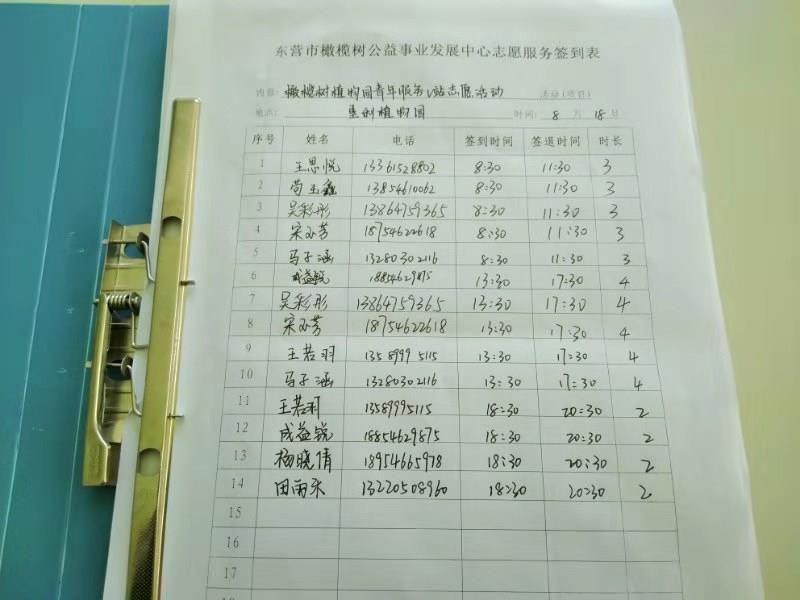 东营市橄榄树公益事业发展中心志愿服务签到表
内容: 橄榄树植物园青年服务V站志愿活动 活动(项目)
地点: 垦利植物园 时间: 8 月 18 日
序号 姓名 电话 签到时间 签退时间 时长
1 王思悦 13361528802 8:30 11:30 3
2 苟玉鑫 13854610062 8:30 11:30 3
3 吴彩彤 13864759365 8:30 11:30 3
4 宋亦芳 18754622618 8:30 11:30 3
5 马子涵 13280302116 8:30 11:30 3
6 成益锐 18854629875 13:30 17:30 4
7 吴彩彤 13864759365 13:30 17:30 4
8 宋亦芳 18754622618 13:30 17:30 4
9 王若羽 13589995115 13:30 17:30 4
10 马子涵 13280302116 13:30 17:30 4
11 王若羽 13589995115 18:30 20:30 2
12 成益锐 18854629875 18:30 20:30 2
13 杨晓倩 18954665978 18:30 20:30 2
14 田雨禾 13220508960 18:30 20:30 2
15
16
17